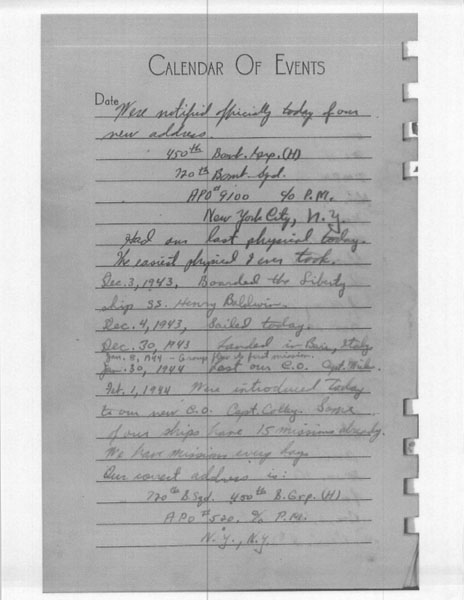 CALENDAR OF EVENTS
Date Were notified officially today of our
new address.
450th Bomb. Grp. (H)
720th Bomb. Sqd.
APO # 9100 c/o P.M.
New York City, N.Y.
Had our last physical today.
The easiest physical I ever took.
Dec. 3, 1943, Boarded the Liberty
ship SS. Henry Baldwin.
Dec. 4, 1943, Sailed today.
Dec. 30, 1943 Landed in Bari, Italy
Jan. 8, 1944 - Group flew its first mission.
Jan. 30, 1944 Lost our C.O. Capt.
Feb. 1, 1944 Were introduced today
to our new C.O. Capt. Colley. Some
of our ships have 15 missions already.
We have missions every day.
Our correct address is:
720th B. Sqd. 450th B. Grp. (H)
APO # 520. c/o P.M.
N.Y., N.Y.